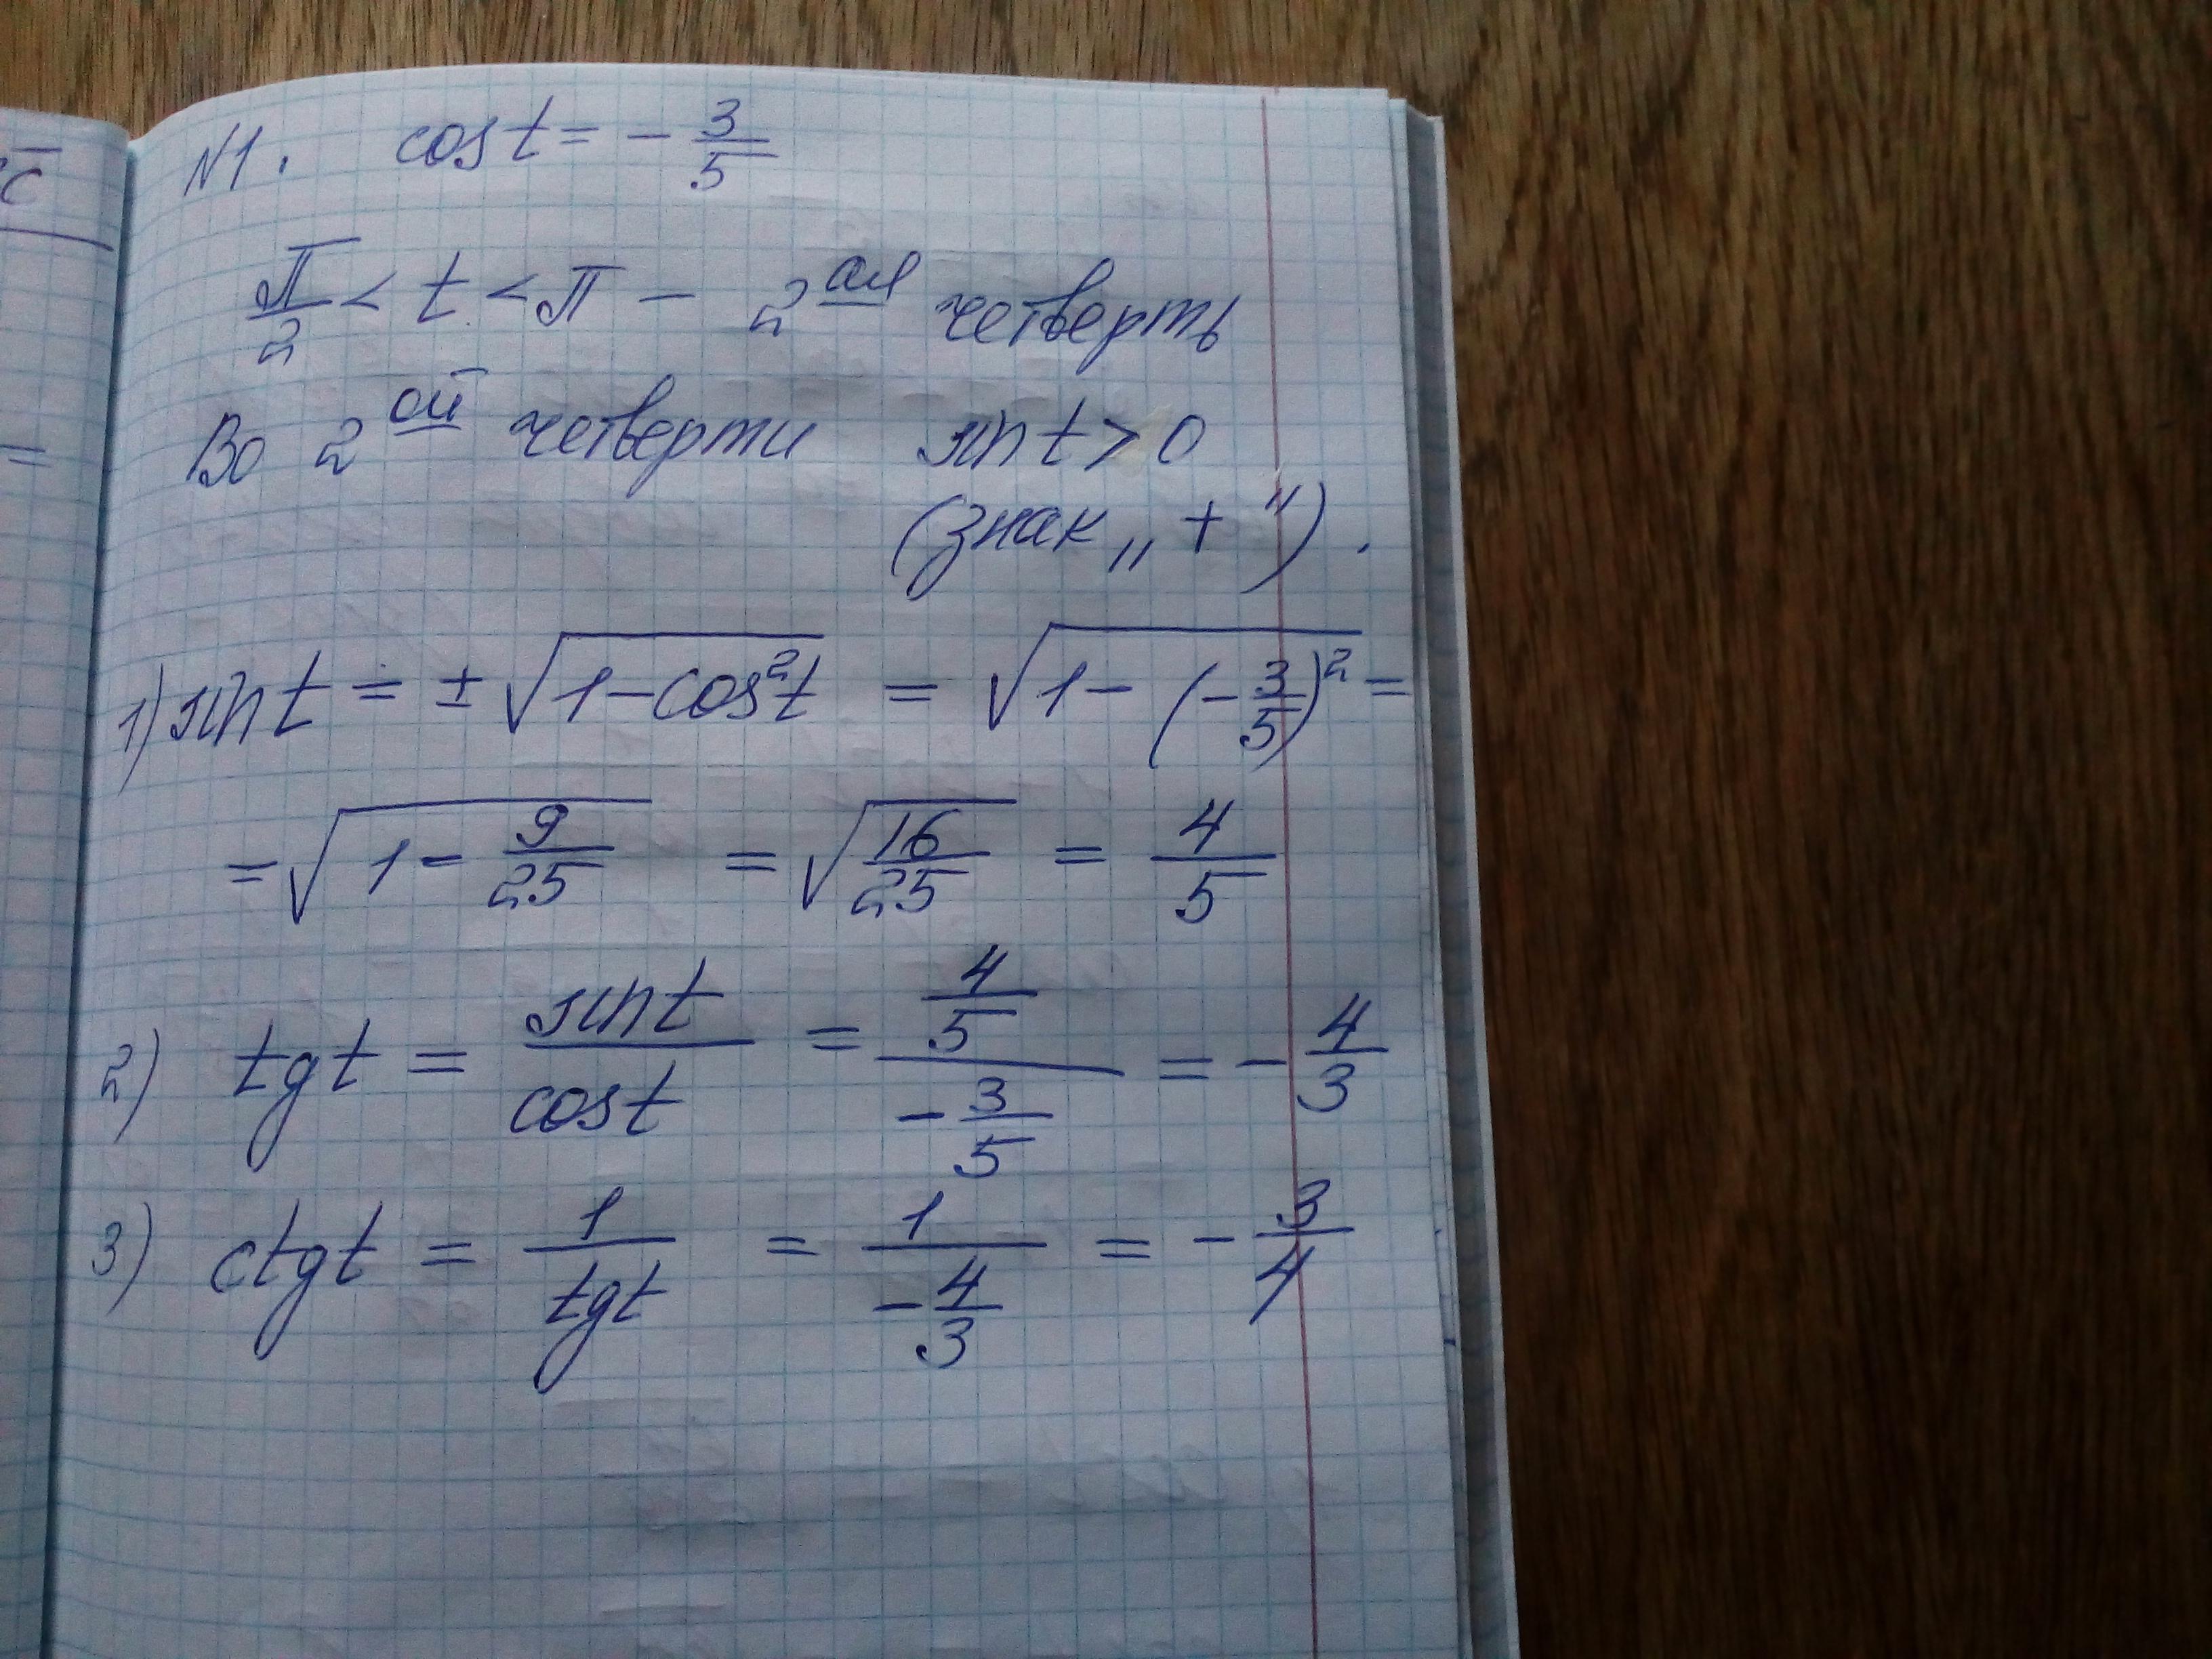 N1. cos t = - 3/5
π/2 < t < π - 2ая четверть
Во 2ой четверти sin t > 0
(знак „ + ").
1) sin t = ± √(1 - cos²t) = √(1 - (- 3/5)²) =
= √(1 - 9/25) = √(16/25) = 4/5
2) tg t = sin t / cos t = (4/5) / (- 3/5) = - 4/3
3) ctg t = 1 / tg t = 1 / (- 4/3) = - 3/4